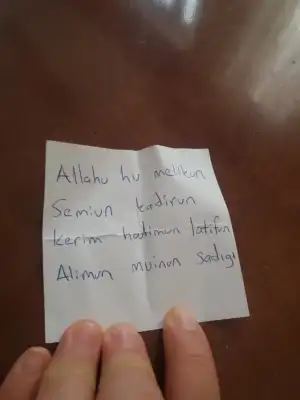 Allahu hu melikun
Semiun kadirun
kerim hakimun latifun
Alimun muinun sadıgı